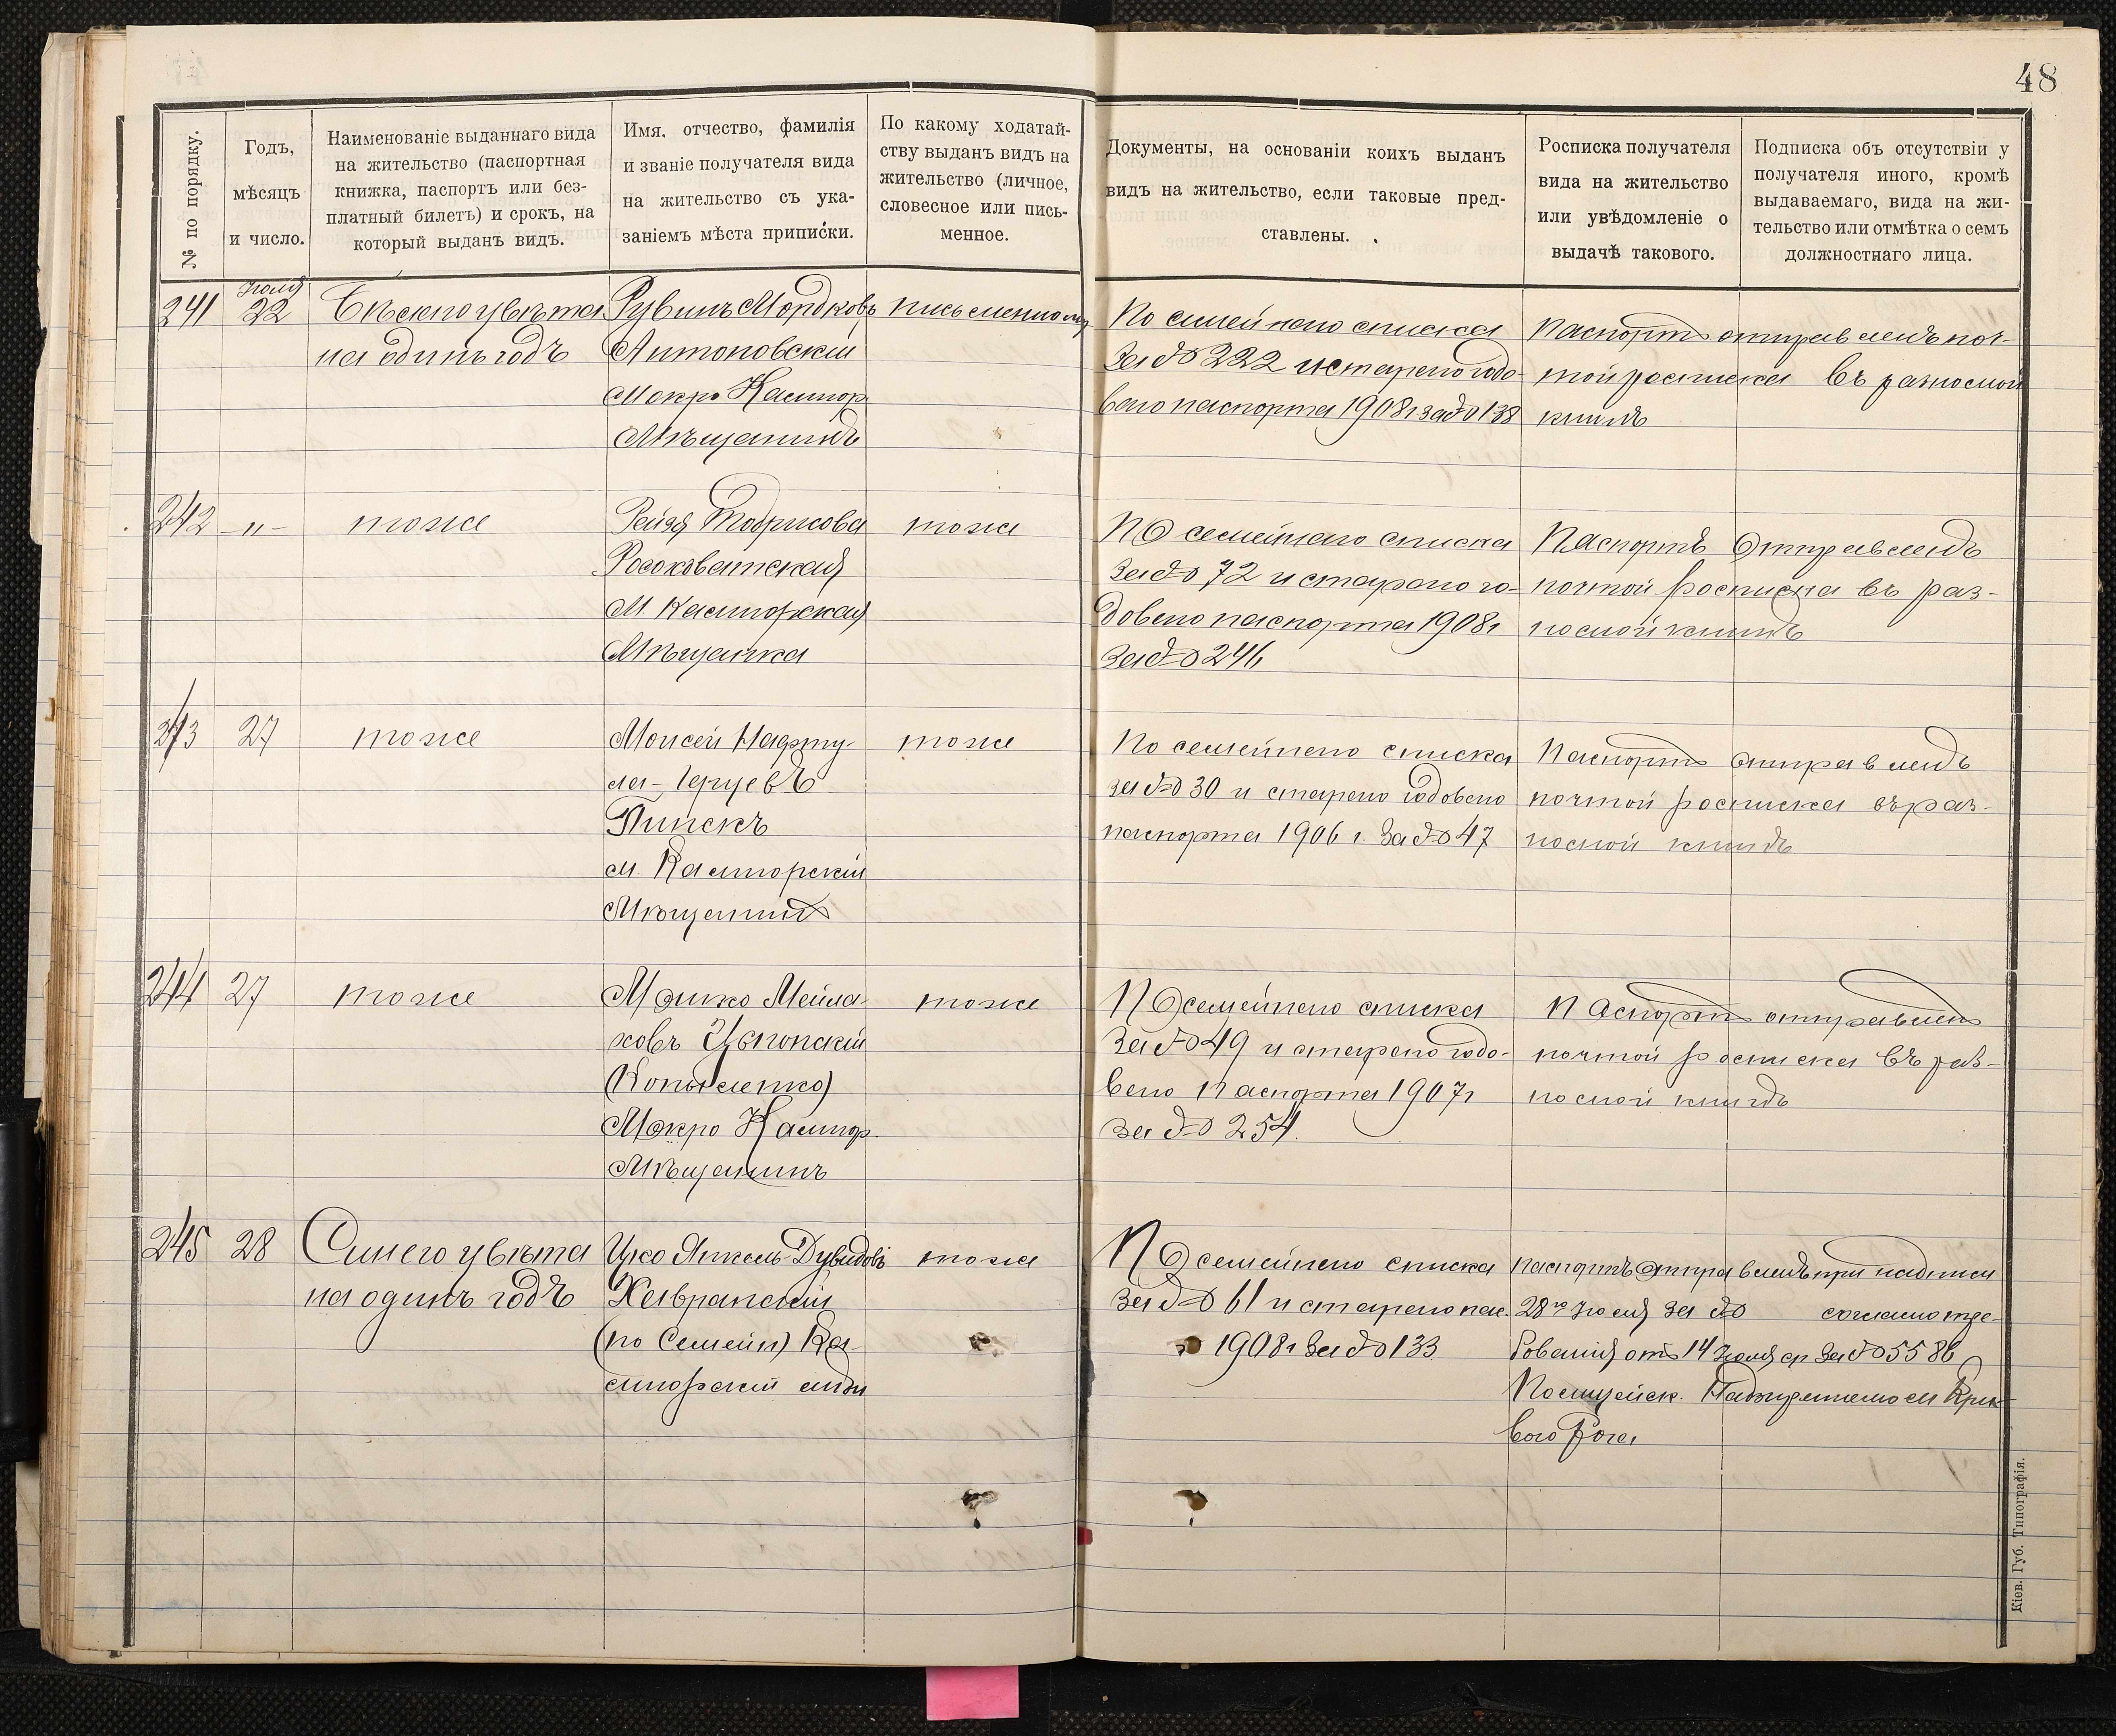 48
№ по порядку.
Годъ,
мѣсяцъ
и число.
Наименованіе выданнаго вида
на жительство (паспортная
книжка, паспортъ или без-
платный билетъ) и срокъ, на
который выданъ видъ.
Имя, отчество, фамилія
и званіе получателя вида
на жительство съ ука-
заніемъ мѣста приписки.
По какому ходатай-
ству выданъ видъ на
жительство (личное,
словесное или пись-
менное.
Документы, на основаніи коихъ выданъ
видъ на жительство, если таковые пред-
ставлены.
Росписка получателя
вида на жительство
или увѣдомленіе о
выдачѣ такового.
Подписка объ отсутствіи у
получателя иного, кромѣ
выдаваемаго, вида на жи-
тельство или отмѣтка о семъ
должностнаго лица.
241
Іюля
22
цвѣта
на одинъ годъ
Рувинъ Мордковъ
Антоновскій
Мокро Калигор
Мѣщанинъ
письменному
По семейного списка
за № 222 и старого годо-
вого паспорта 1908 г за № 138
Паспортъ отправленъ поч-
той росписка въ разносной
книгѣ
242
-"-
тоже
Рейзя Тодрисова
Росоховатская
М. Калигорская
Мѣщанка
тоже
По семейнаго списка
за № 72 и старого го-
дового паспорта 1908 г
за № 246
Паспортъ отправленъ
почтой росписка въ раз-
носной книгѣ
243
27
тоже
Мойсей Нафту-
ла-Герцевъ
Пинскъ
м. Калигорскій
Мѣщанинъ
тоже
По семейного списка
за № 30 и старого годового
паспорта 1906 г. за № 47
Паспортъ отправленъ
почтой росписка въ раз-
носной книгѣ
244
27
тоже
Мошко Мейла-
ховъ
Мокро Калигор.
Мѣщанинъ
тоже
По семейного списка
за № 49 и старого годо-
вого паспорта 1907 г
за № 254.
Паспортъ отправленъ
почтой росписка въ раз-
носной книгѣ
245
28
Синего цвѣта
на одинъ годъ
Ицко Янкель-Дувидовъ
(по Семейн) Ка-
лигорскій
тоже
По семейного списка
за № 61 и старого пас.
1908 г за № 133
Паспортъ отправленъ при надписи
28го Іюля за № согласно тре-
бованія отъ 14 Іюля ср за № 5586
Полицейск. Надзирателю м Кри-
вого Рога
Кіев. Губ. Типографія.